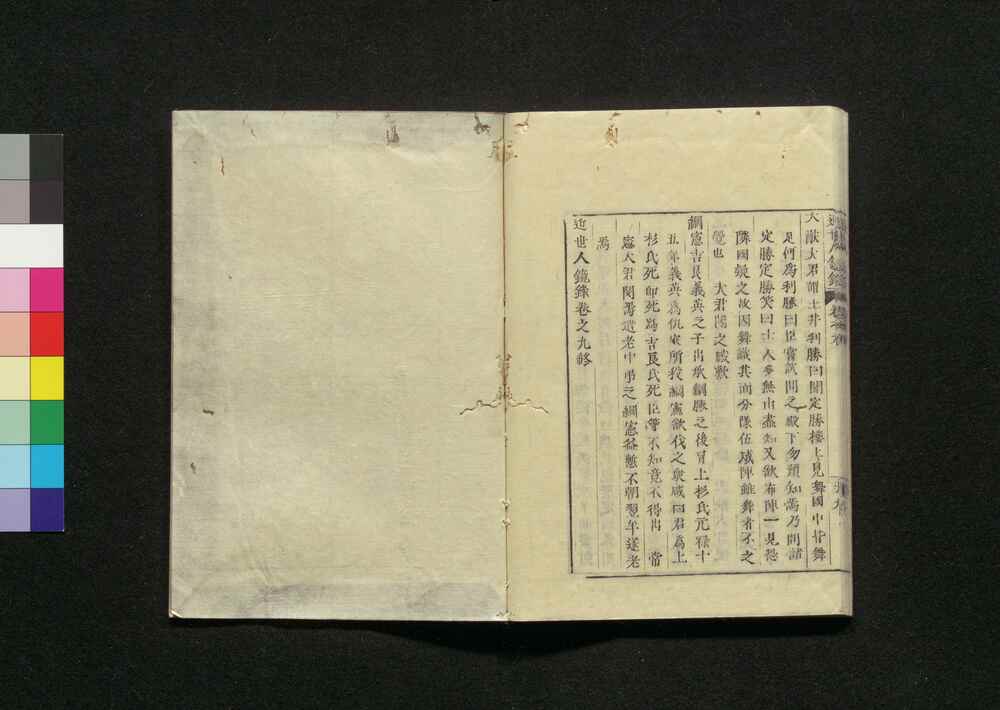 大猷大君謂土井利勝曰聞定勝樓上見舞國中皆舞
足何爲利勝曰臣嘗試問之殿下勿預知焉乃問諸
定勝定勝笑曰士人多無由盡知又欲布陣一見恐
隣國競之故因舞識其面分隊伍
覺也　大君聞之感歎
綱憲吉良義英之子出承綱勝之後冒上杉氏元祿十
五年義英爲仇家所殺綱憲欲伐之衆咸曰君爲上
杉氏死即死焉吉良氏死臣等不知竟不得出　常
憲大君閔焉遣老中弔之綱憲益慙不朝翌年遂老
焉
近世人鏡錄卷之九終